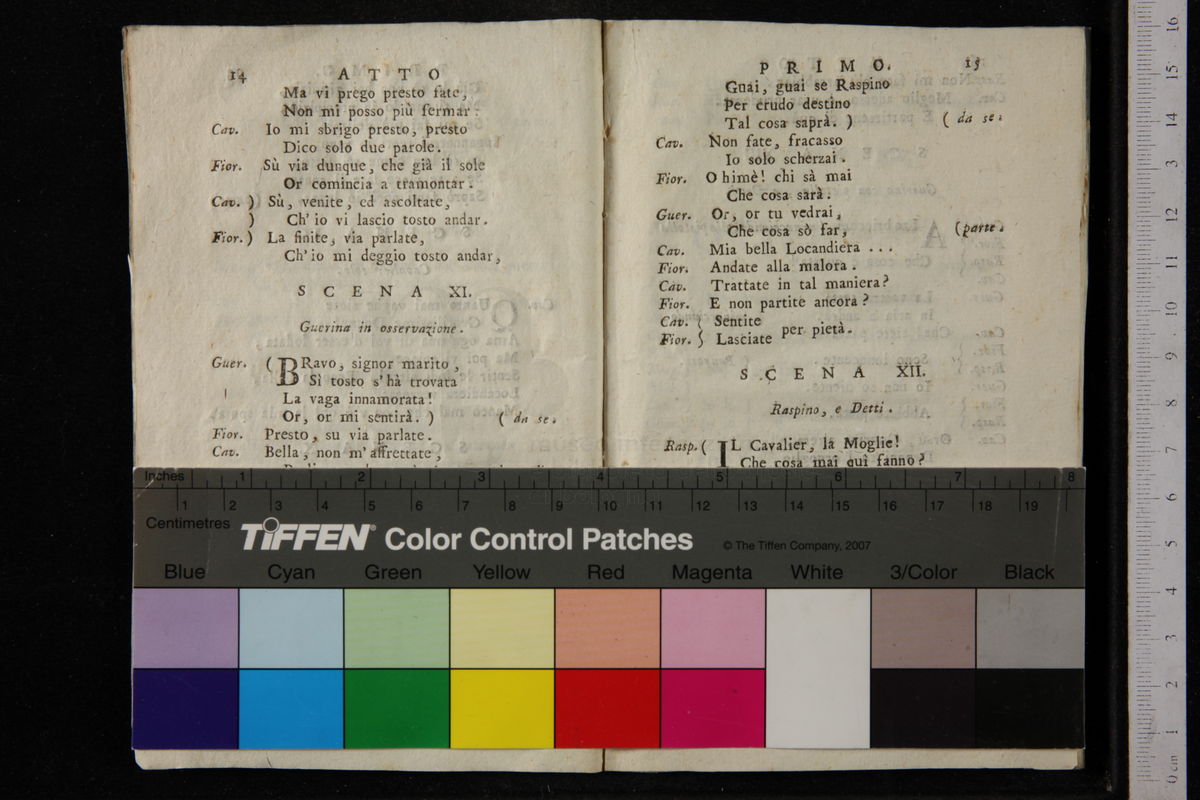 14 ATTO
Ma vi prego presto fate,
Non mi posso più fermar.
Cav. Io mi sbrigo presto, presto
Dico solo due parole.
Fior. Sù via dunque, che già il sole
Or comincia a tramontar.
Cav. ) Sù, venite, ed ascoltate,
) Ch' io vi lascio tosto andar.
Fior. ) La finite, via parlate,
Ch'io mi deggio tosto andar,
SCENA XI.
Guerina in osservazione.
Guer. ( BRavo, signor marito,
Sì tosto s'hà trovata
La vaga innamorata!
Or, or mi sentirà. ) ( da se.
Fior. Presto, su via parlate.
Cav. Bella, non m'affrettate,
PRIMO. 15
Guai, guai se Raspino
Per crudo destino
Tal cosa saprà. ) ( da se.
Cav. Non fate, fracasso
Io solo scherzai.
Fior. Ohimè! chi sà mai
Che cosa sarà.
Guer. Or, or tu vedrai,
Che cosa sò far, (parte.
Cav. Mia bella Locandiera ...
Fior. Andate alla malora.
Cav. Trattate in tal maniera?
Fior. E non partite ancora?
Cav. } Sentite
per pietà.
Fior. } Lasciate
SCENA XII.
Raspino, e Detti.
Rasp. ( IL Cavalier, la Moglie!
Che cosa mai quì fanno?
Inches 1 2 3 4 5 6 7 8
1 2 3 4 5 6 7 8 9 10 11 12 13 14 15 16 17 18 19
Centimetres
TIFFEN® Color Control Patches © The Tiffen Company, 2007
Blue Cyan Green Yellow Red Magenta White 3/Color Black
0 cm 1 2 3 4 5 6 7 8 9 10 11 12 13 14 15 16